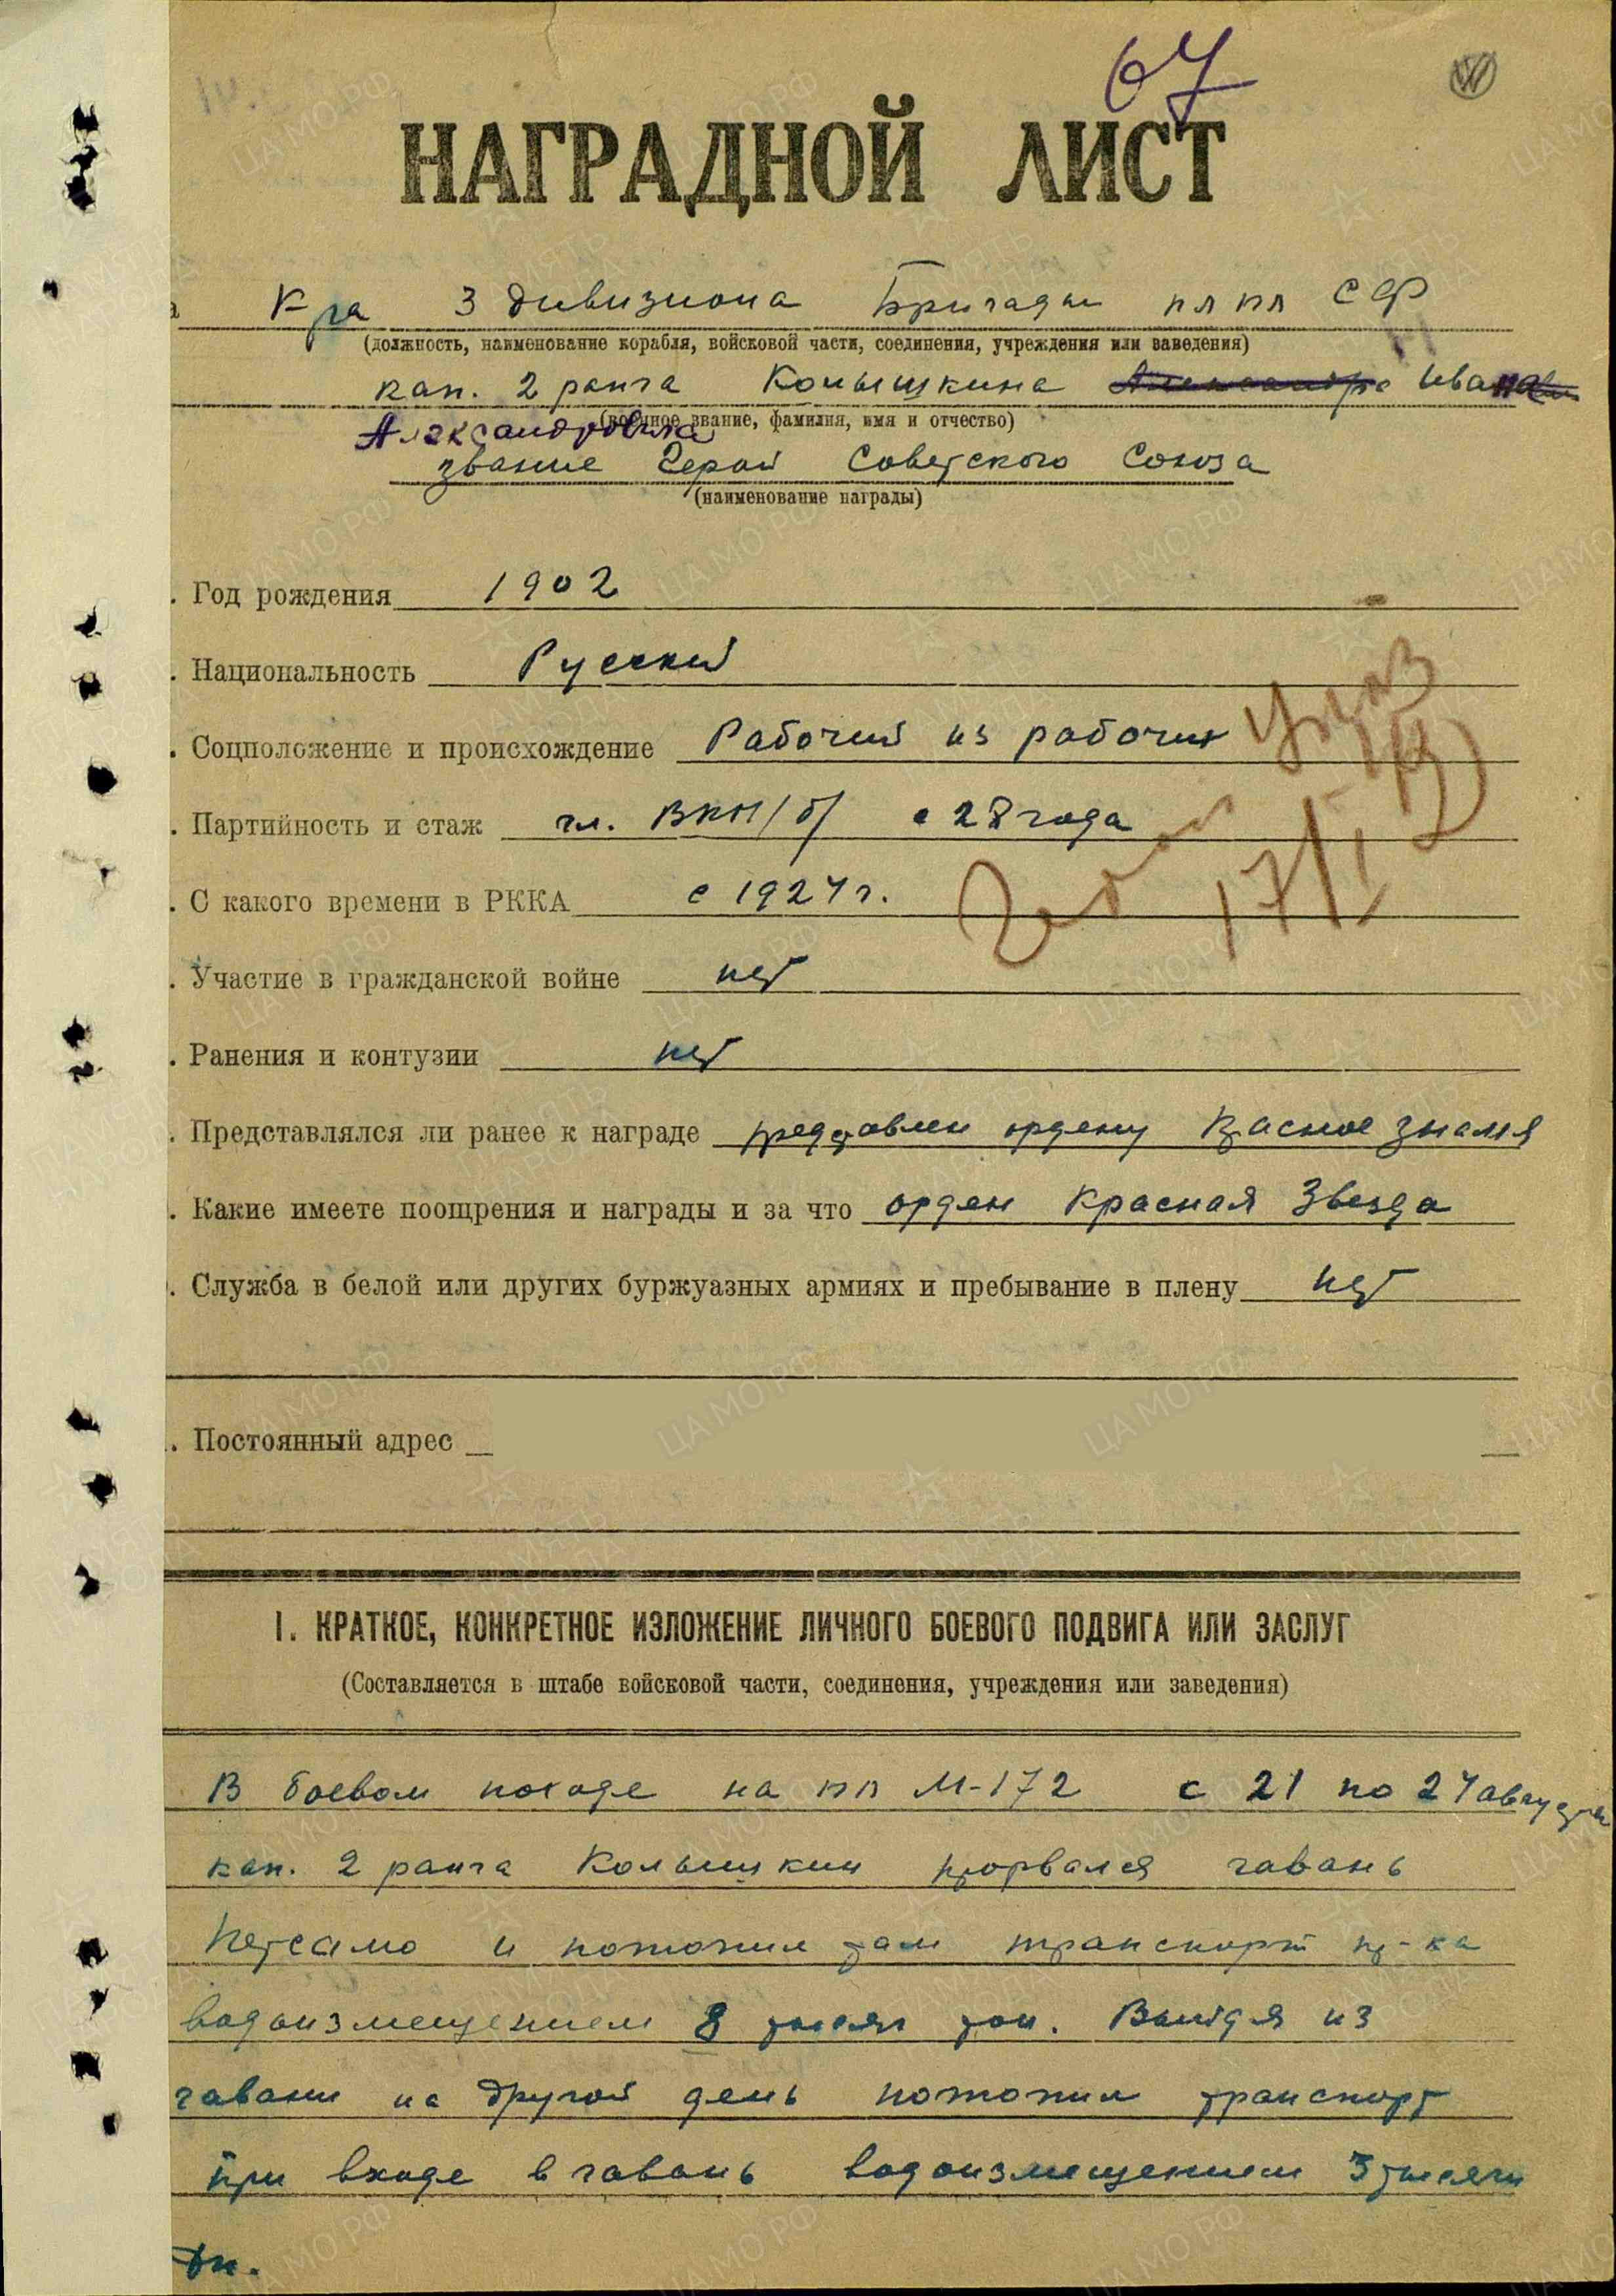 67
НАГРАДНОЙ ЛИСТ
а К-ра 3 дивизиона Бригады пл пл СФ
(должность, наименование корабля, войсковой части, соединения, учреждения или заведения)
кап. 2 ранга Колышкина Александра Ивана
(военное звание, фамилия, имя и отчество)
Александровича
звание Герой Советского Союза
(наименование награды)
. Год рождения 1902
. Национальность Русский
. Соцположение и происхождение Рабочий из рабочих
Указ
. Партийность и стаж чл. ВКП/б/ с 28 года
. С какого времени в РККА с 1924 г.
17/I
. Участие в гражданской войне нет
. Ранения и контузии нет
. Представлялся ли ранее к награде представлен ордену Красное знамя
. Какие имеете поощрения и награды и за что орден Красная Звезда
. Служба в белой или других буржуазных армиях и пребывание в плену нет
. Постоянный адрес
I. КРАТКОЕ, КОНКРЕТНОЕ ИЗЛОЖЕНИЕ ЛИЧНОГО БОЕВОГО ПОДВИГА ИЛИ ЗАСЛУГ
(Составляется в штабе войсковой части, соединения, учреждения или заведения)
В боевом походе на пл М-172 с 21 по 24 августа
кап. 2 ранга Колышкин прорвался гавань
Петсамо и потопил там транспорт пр-ка
водоизмещением 8 тысяч тон. Выйдя из
гавани на другой день потопил транспорт
при входе в гавань водоизмещением 3 тысячи
тн.